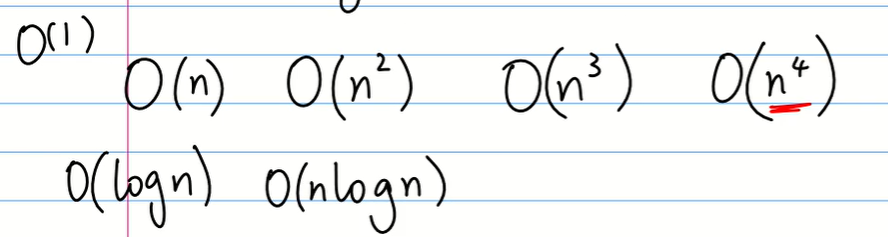 O(1)
O(n) O(n²) O(n³) O(n⁴)
O(logn) O(nlogn)